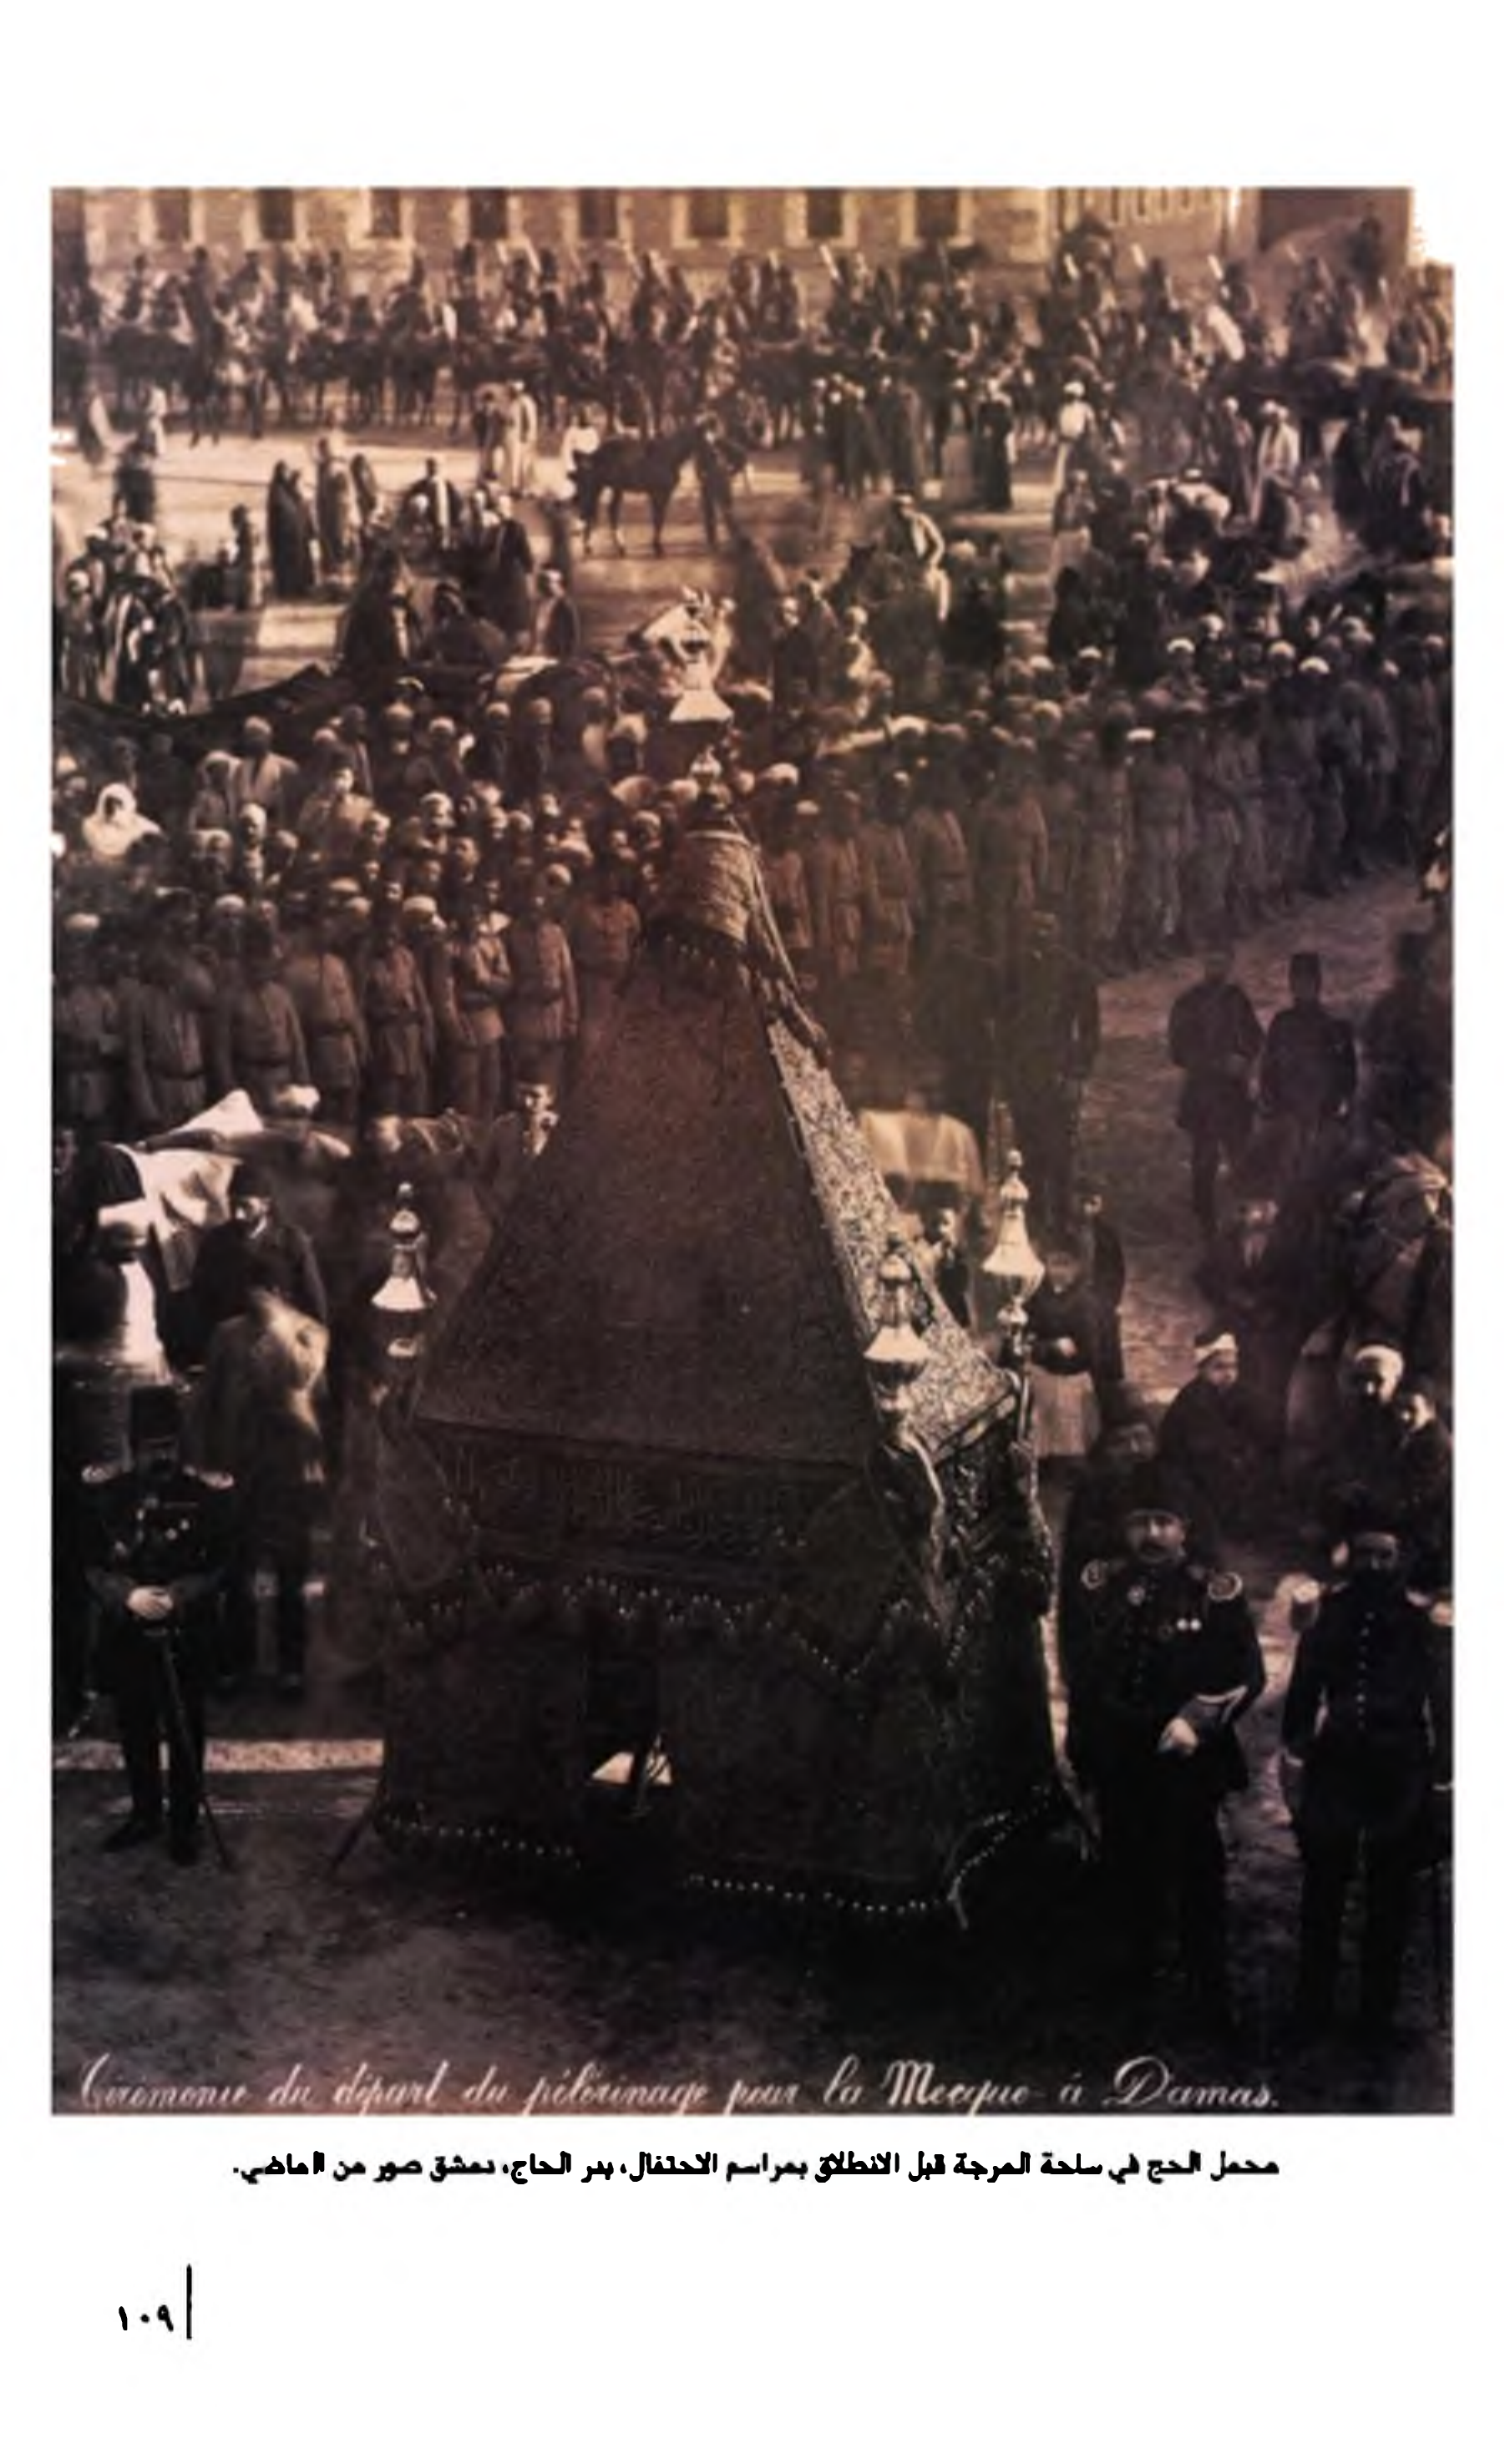 Ceremonie du départ du pélerinage pour la Mecque à Damas.
محمل الحج في ساحة المرجة قبل الانطلاق بمراسم الاحتفال، بدر الحاج، دمشق صور من الماضي.
١٠٩